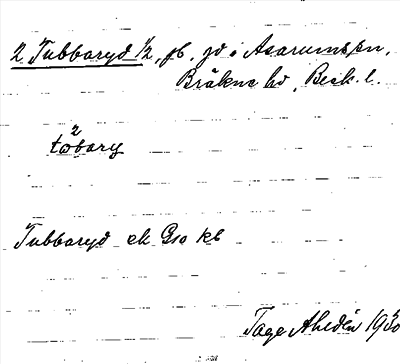 2 Tubbaryd 1/2, jb. jd i Asarums sn,
Bräkne hd, Blek. l.
2
tabary
Tubbaryd ek G10 kb
Tage Ahldén 1930